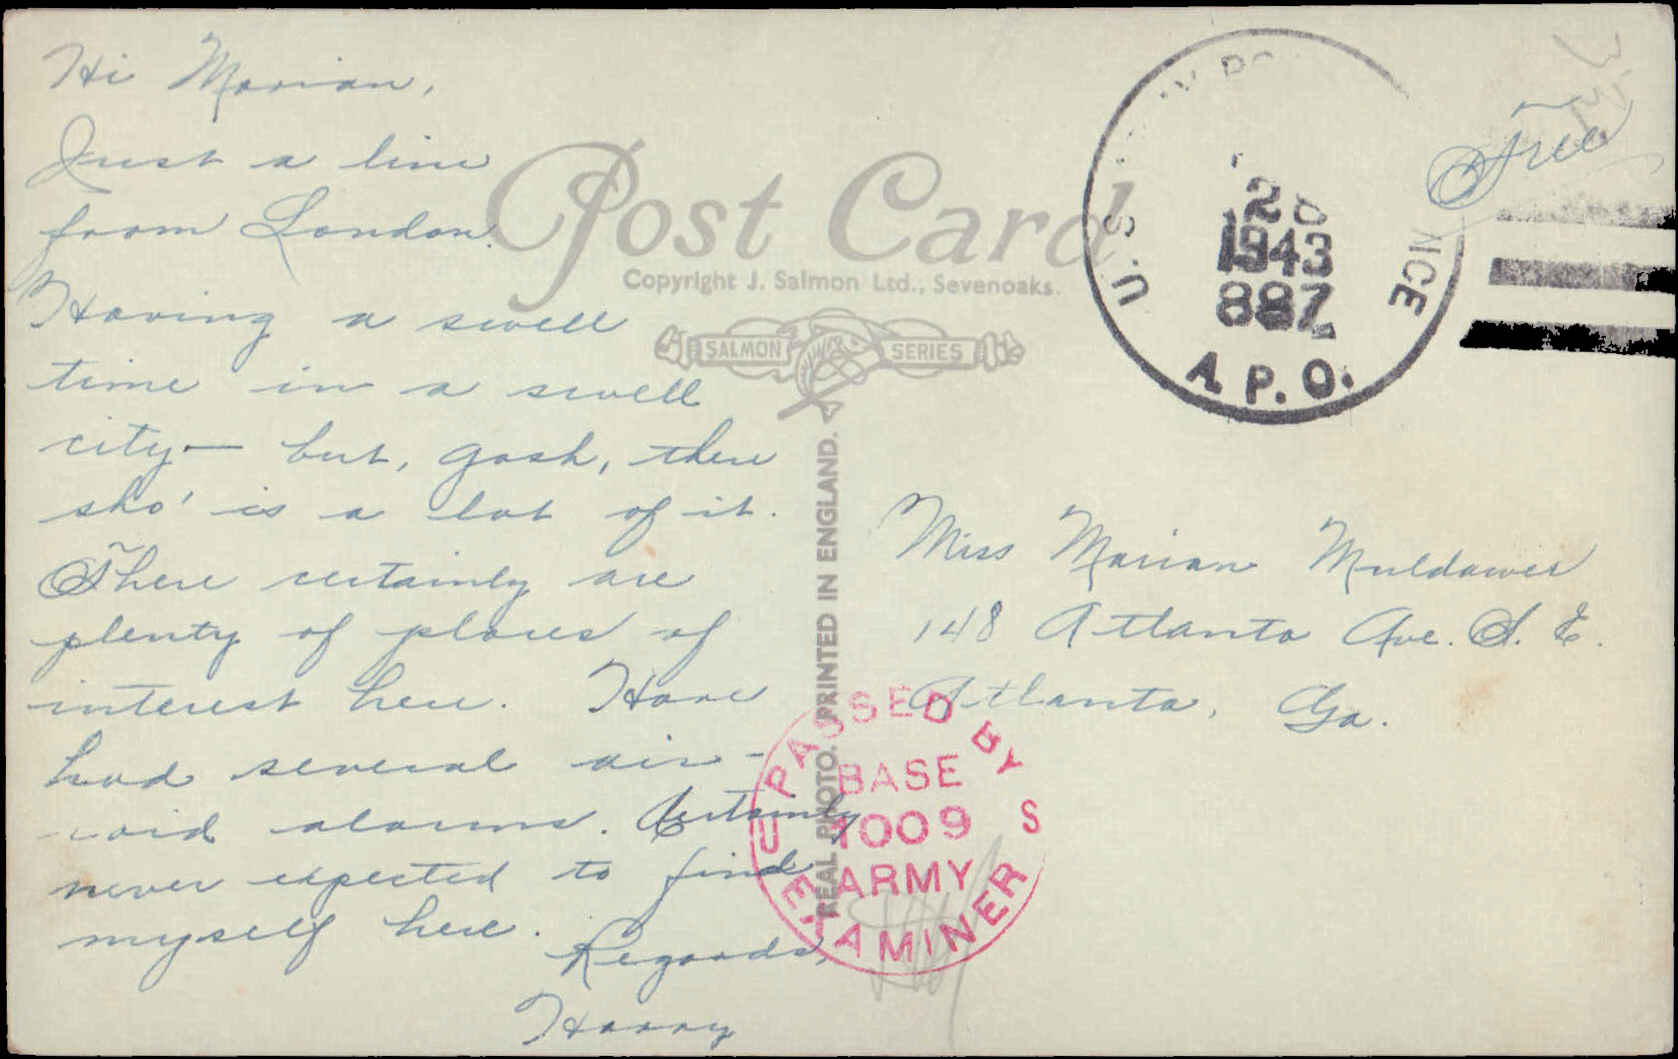 Hi Marian,
Just a line
from London.
Having a swell
time in a swell
city — but, gosh, there
sho' is a lot of it.
There certainly are
plenty of places of
interest here. Have
had several air-
raid alarms. Certainly
never expected to find
myself here.
Regards,
Harry
Post Card
Copyright J. Salmon Ltd., Sevenoaks.
SALMON SERIES
REAL PHOTO. PRINTED IN ENGLAND.
U.S.
1943
887
A.P.O.
Free
Miss Marian Muldawer
148 Atlanta Ave. S. E.
Atlanta, Ga.
PASSED BY
BASE
1009
ARMY
EXAMINER
U S